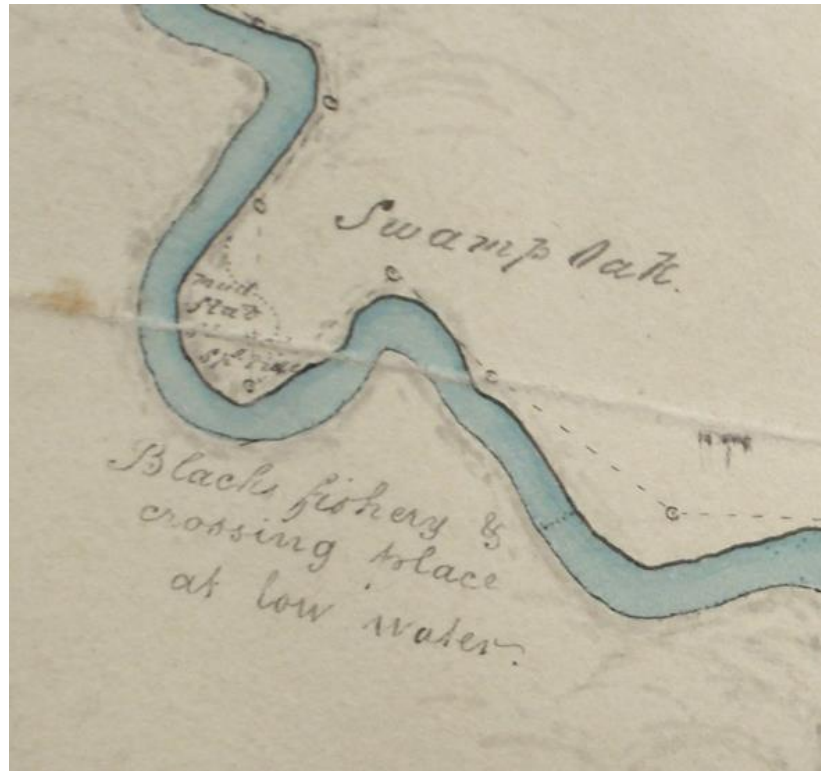 Swamp Oak.
mud
flat
Blacks fishery &
crossing place
at low water.